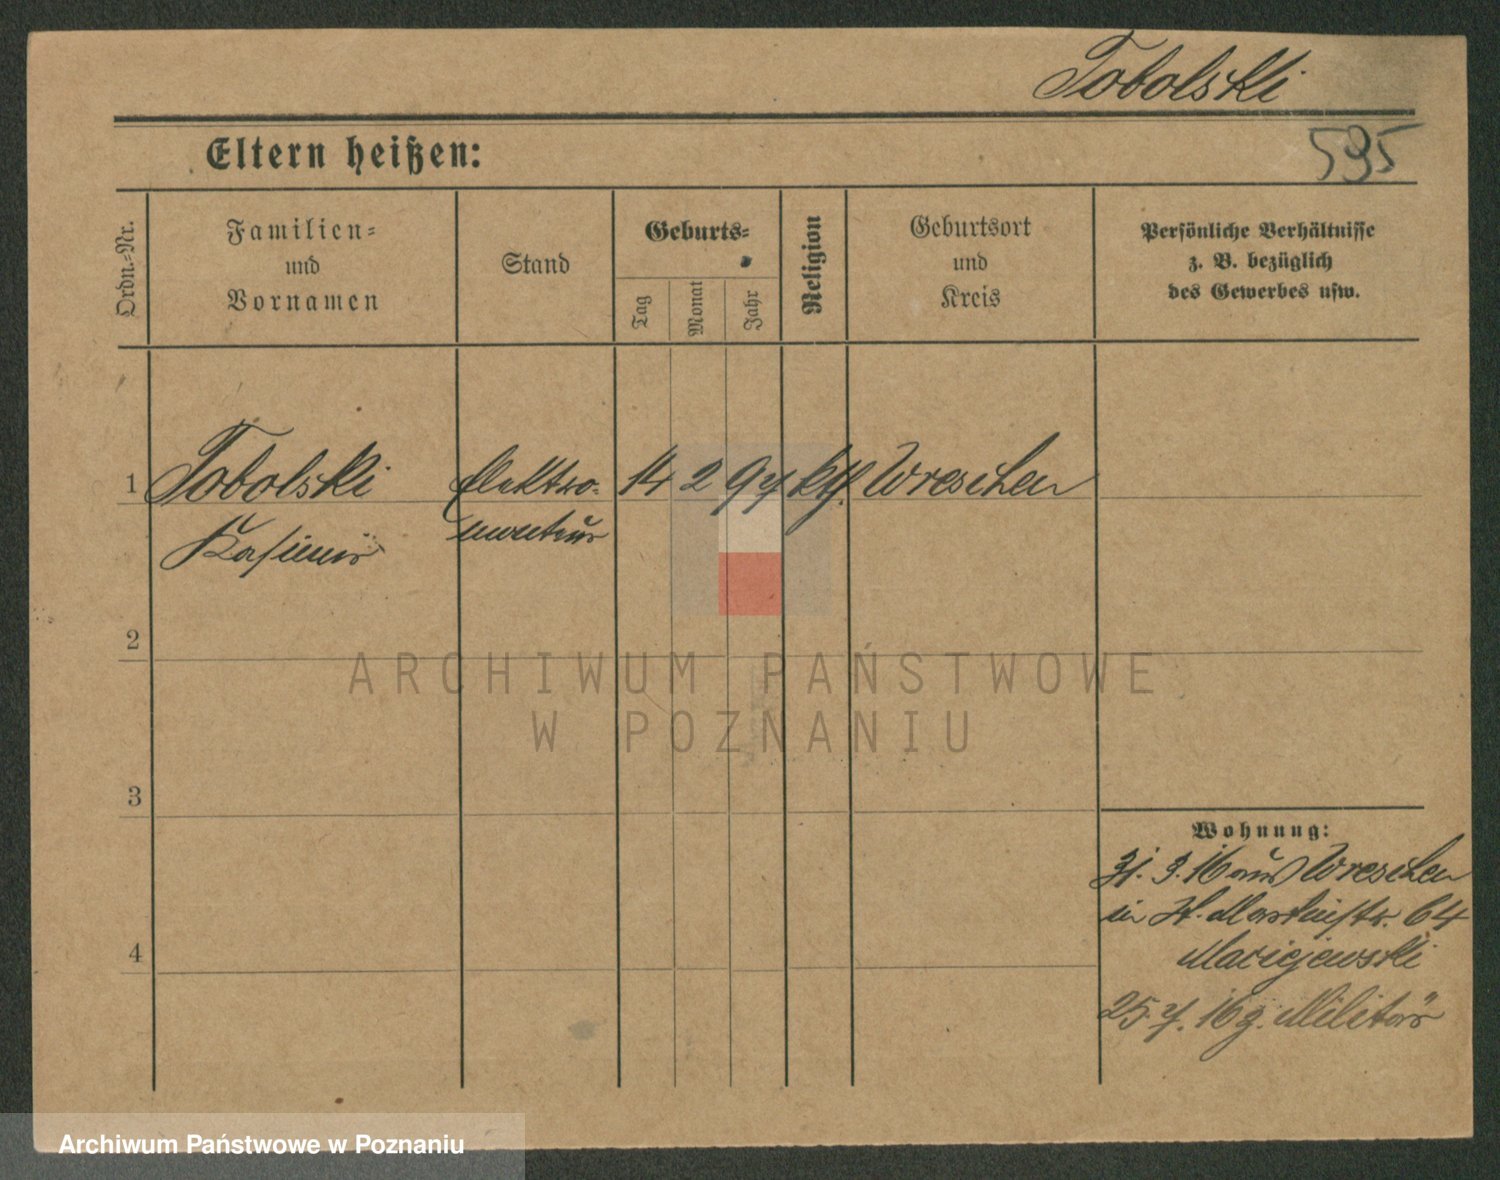 Tobolski
595
Eltern heißen:
Ordn.-Nr.
Familien- und Vornamen
Stand
Geburts-
Tag
Monat
Jahr
Religion
Geburtsort und Kreis
Persönliche Verhältnisse
z. B. bezüglich
des Gewerbes usw.
1 Tobolski Elektro- 14 2 97 kth. Wreschen
Kasimir monteur
2
3
4
Wohnung:
31. 3. 16 aus Wreschen
in St. Martinstr. 64
Maciejewski
25. 7. 16 z. Militär
ARCHIWUM PAŃSTWOWE
W POZNANIU
Archiwum Państwowe w Poznaniu